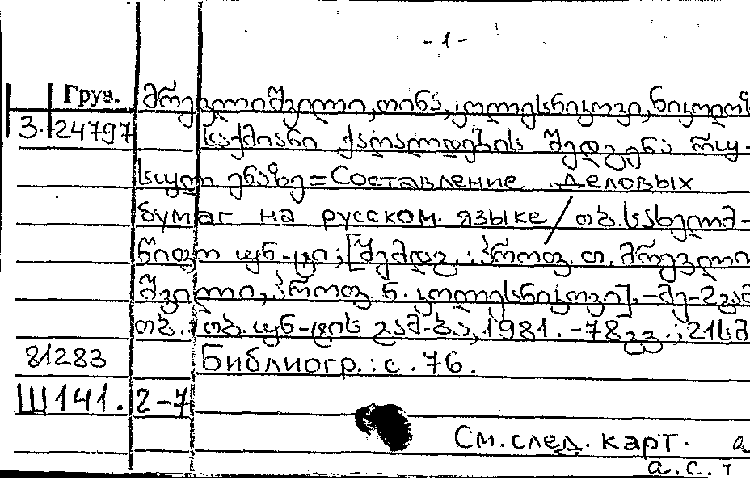 - 1 -
Груз. მრევლიშვილი, თინა, კოლესნიკოვი, ნიკოლოზ
3. 24797 საქმიანი ქაღალდების შედგენა რუ-
სულ ენაზე = Составление деловых
бумаг на русском языке / თბ. სახელმ-
წიფო უნ-ტი; [შემდგ.: პროფ. თ. მრევლი
შვილი, პროფ. ნ. კოლესნიკოვი]. - მე-2 გამ
თბ.: თბ. უნ-ტის გამ-ბა, 1981. - 78 გვ.; 21 სმ
81283 Библиогр.: с. 76.
Ш141.2-7
См. след. карт. а
а.с.т